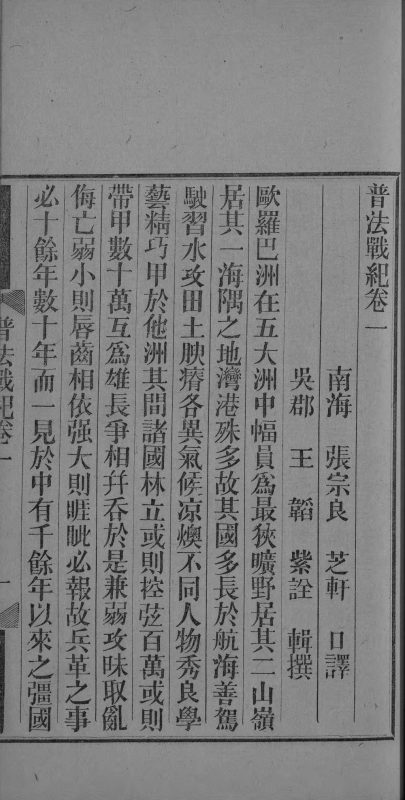 普法戰紀卷一
南海 張宗良 芝軒 口譯
吳郡 王韜 紫詮 輯撰
歐羅巴洲在五大洲中幅員爲最狹曠野居其二山嶺
居其一海隅之地灣港殊多故其國多長於航海善駕
駛習水攻田土腴瘠各異氣候凉燠不同人物秀良學
藝精巧甲於他洲其間諸國林立或則控弦百萬或則
帶甲數十萬互爲雄長爭相幷吞於是兼弱攻昧取亂
侮亡弱小則唇齒相依强大則睚眦必報故兵革之事
必十餘年數十年而一見於中有千餘年以來之彊國
普法戰紀卷一
一